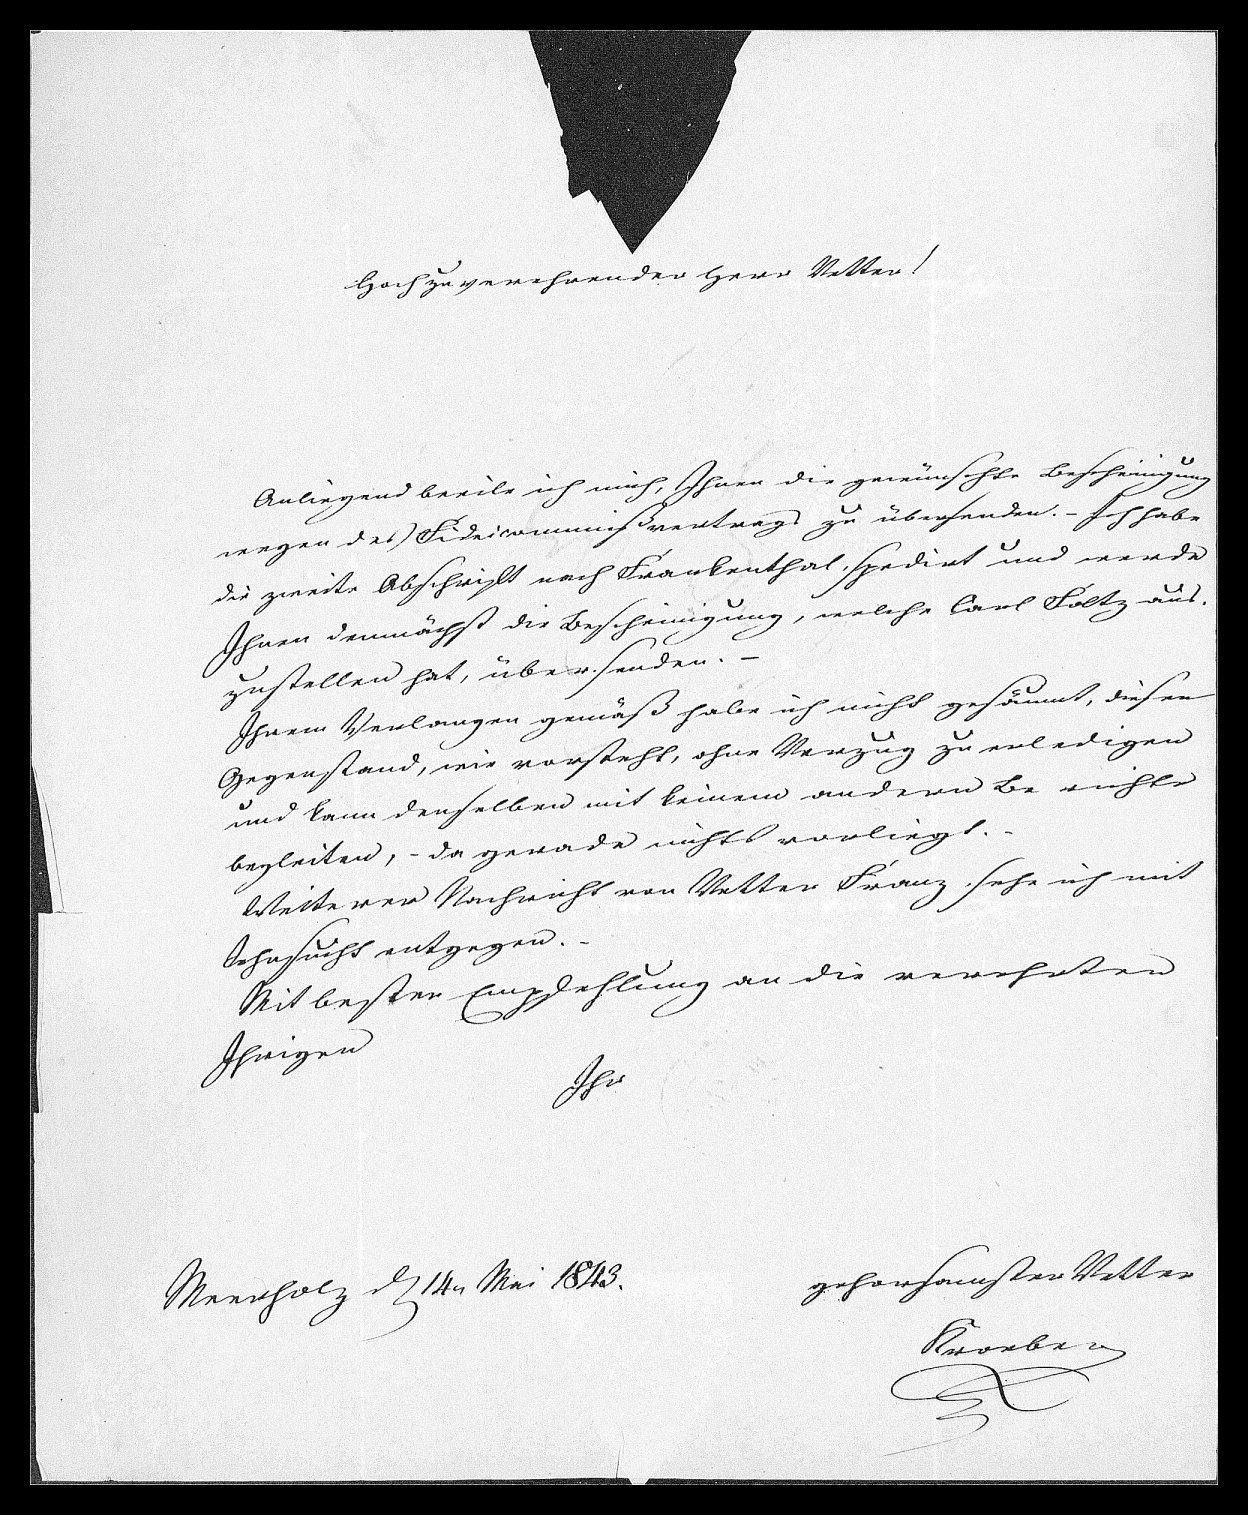 Hochzuverehrender Herr Vetter!
Anliegend beeile ich mich, Ihnen die gewünschte Bescheinigung
wegen des Fideicommißvertrags zu übersenden. - Ich habe
die zweite Abschrift nach Frankenthal spedirt und werde
Ihnen demnächst die Bescheinigung, welche Carl Foltz aus-
zustellen hat, übersenden. -
Ihrem Verlangen gemäß habe ich nicht gesäumt, diesen
Gegenstand, wie vorsteht, ohne Verzug zu erledigen
und kann denselben mit keinem andern Berichte
begleiten, - da gerade nichts vorliegt. -
Weiterer Nachricht von Vetter Franz sehe ich mit
Sehnsucht entgegen. -
Mit bester Empfehlung an die verehrten
Ihrigen
Ihr
Meerholz d 14n Mai 1843.
gehorsamster Vetter
Kroeber